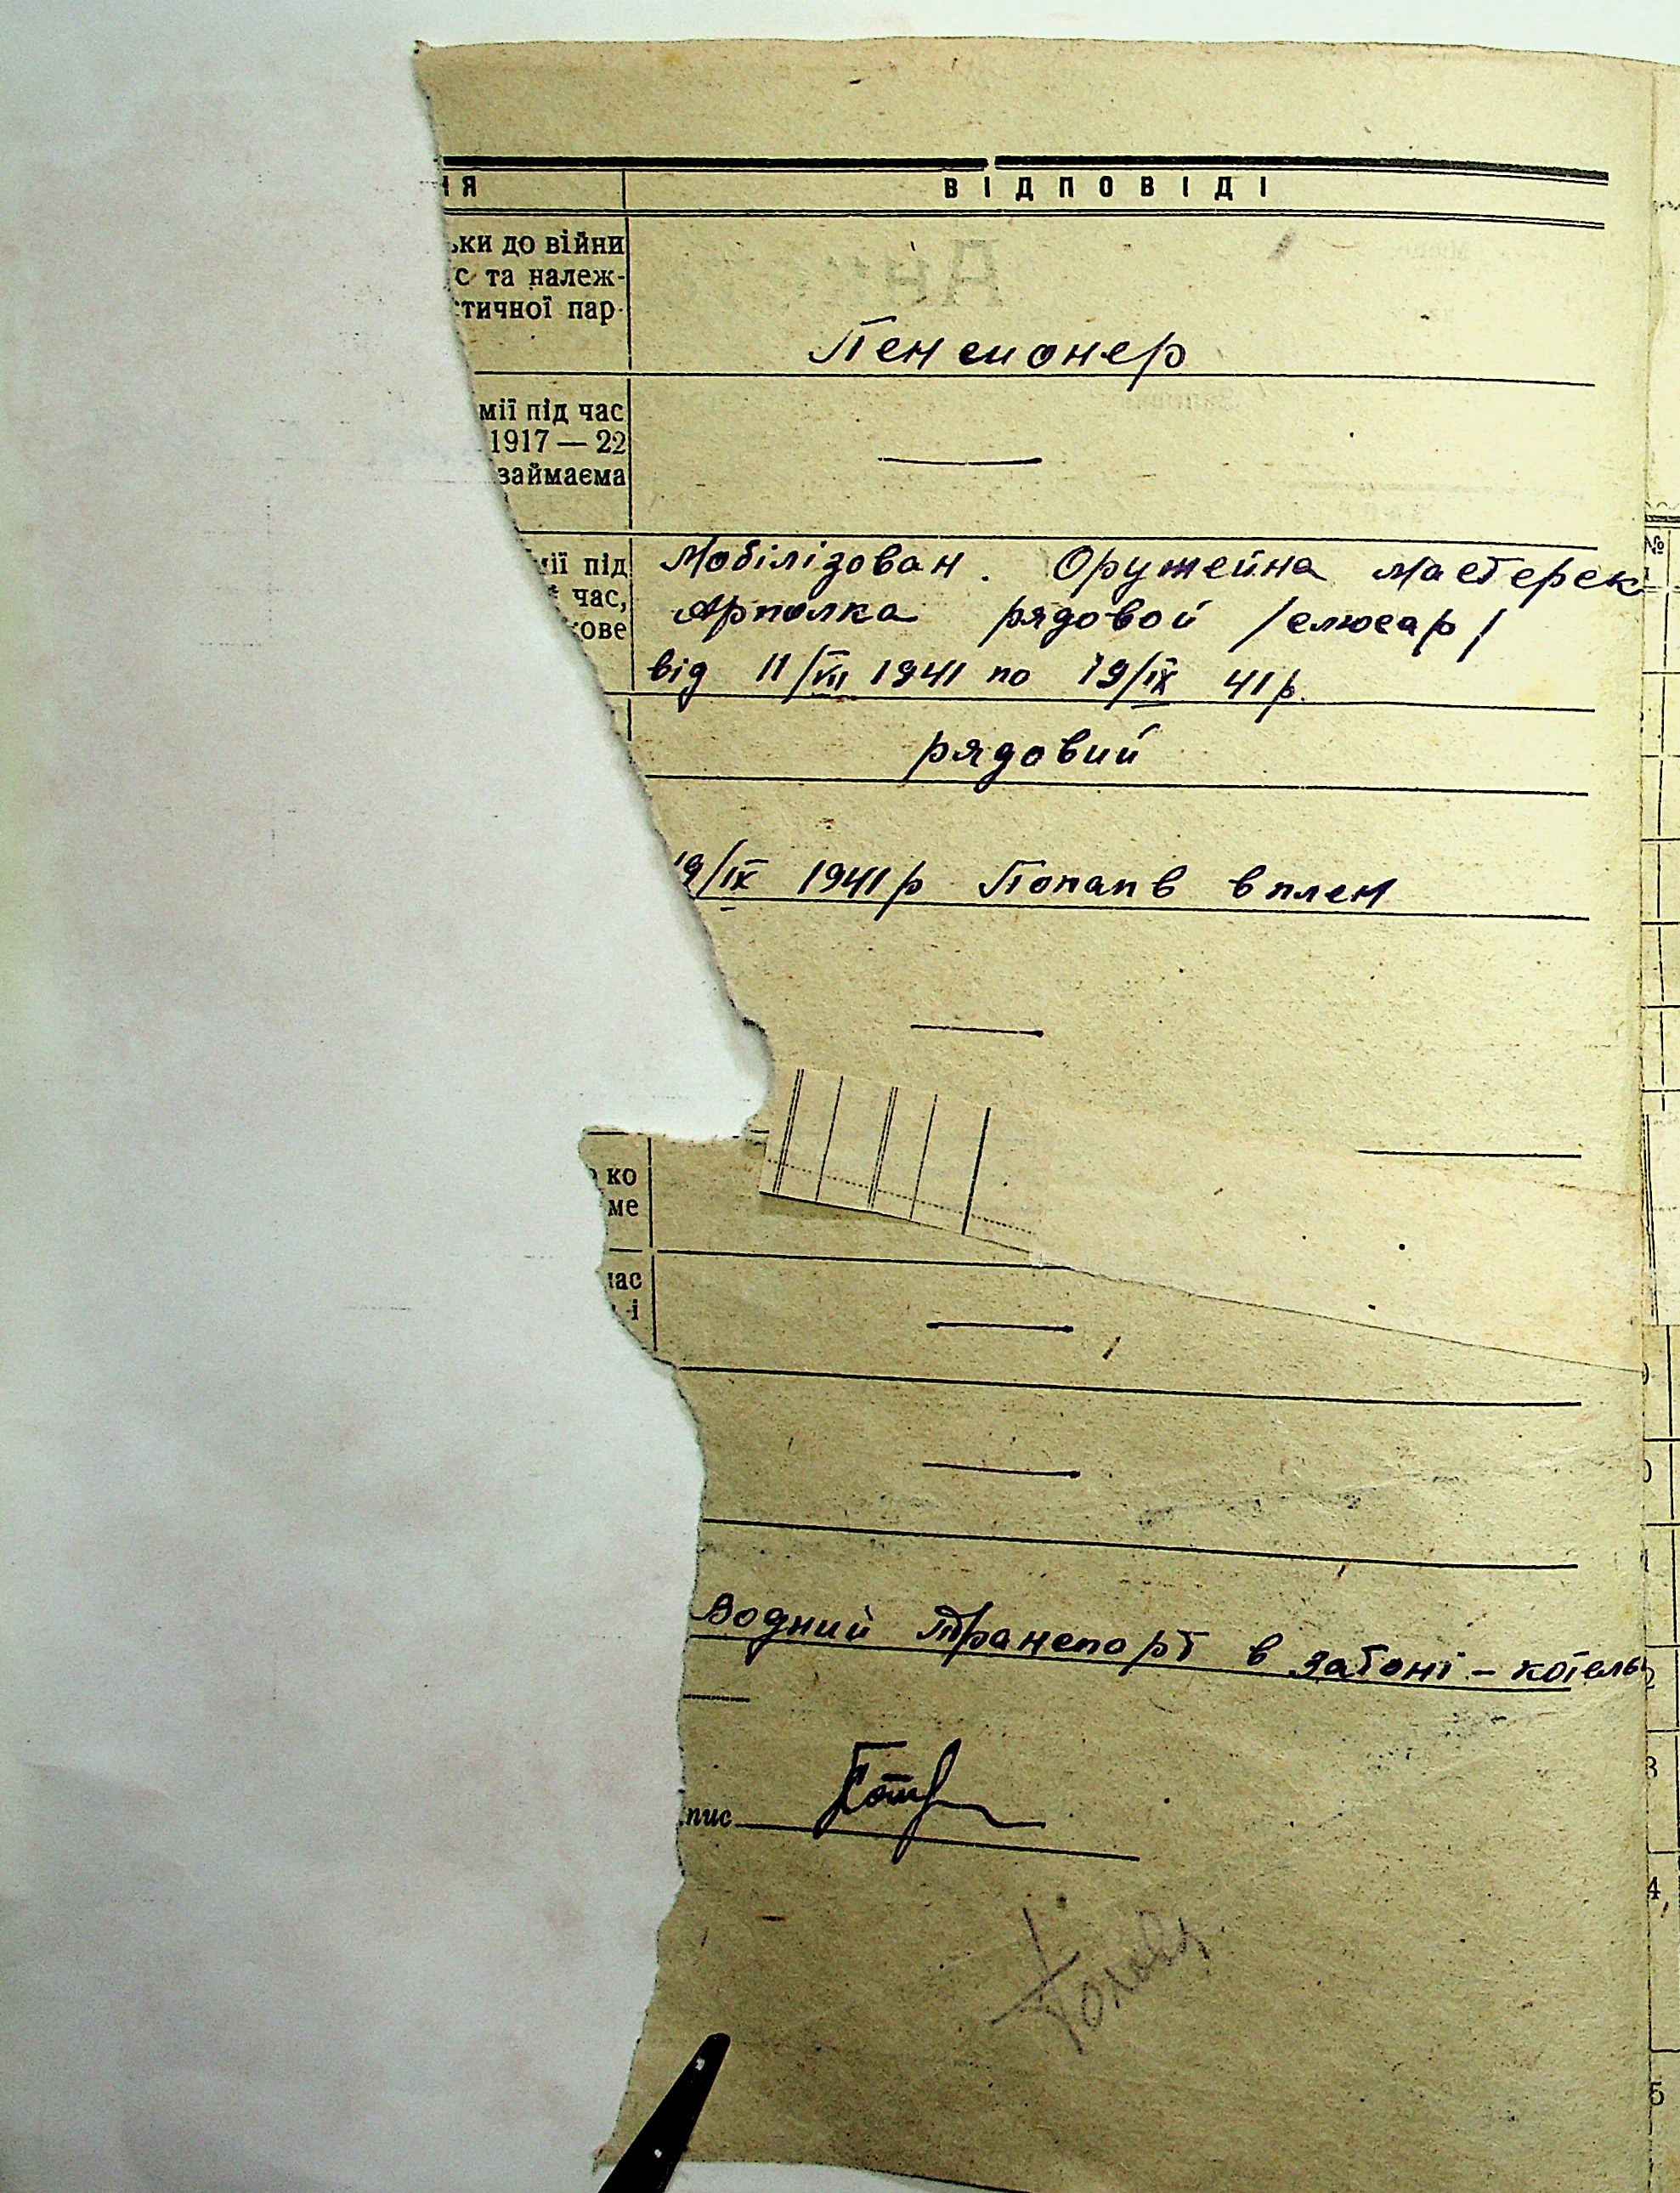 ня ВІДПОВІДІ
ьки до війни
с та належ-
стичної пар-
Пенсионер
мії під час
1917 — 22
займаєма
—
мії під
час,
кове
Мобілізован. Оружейна мастерск
Арполка рядовой /слюсар/
від 11/VII 1941 по 19/IX 41р.
рядовий
19/IX 1941р Попапв в плен
—
ко
ме
час
і
—
—
Водний транспорт в затоні - котельн
пис
№
3
4,
5